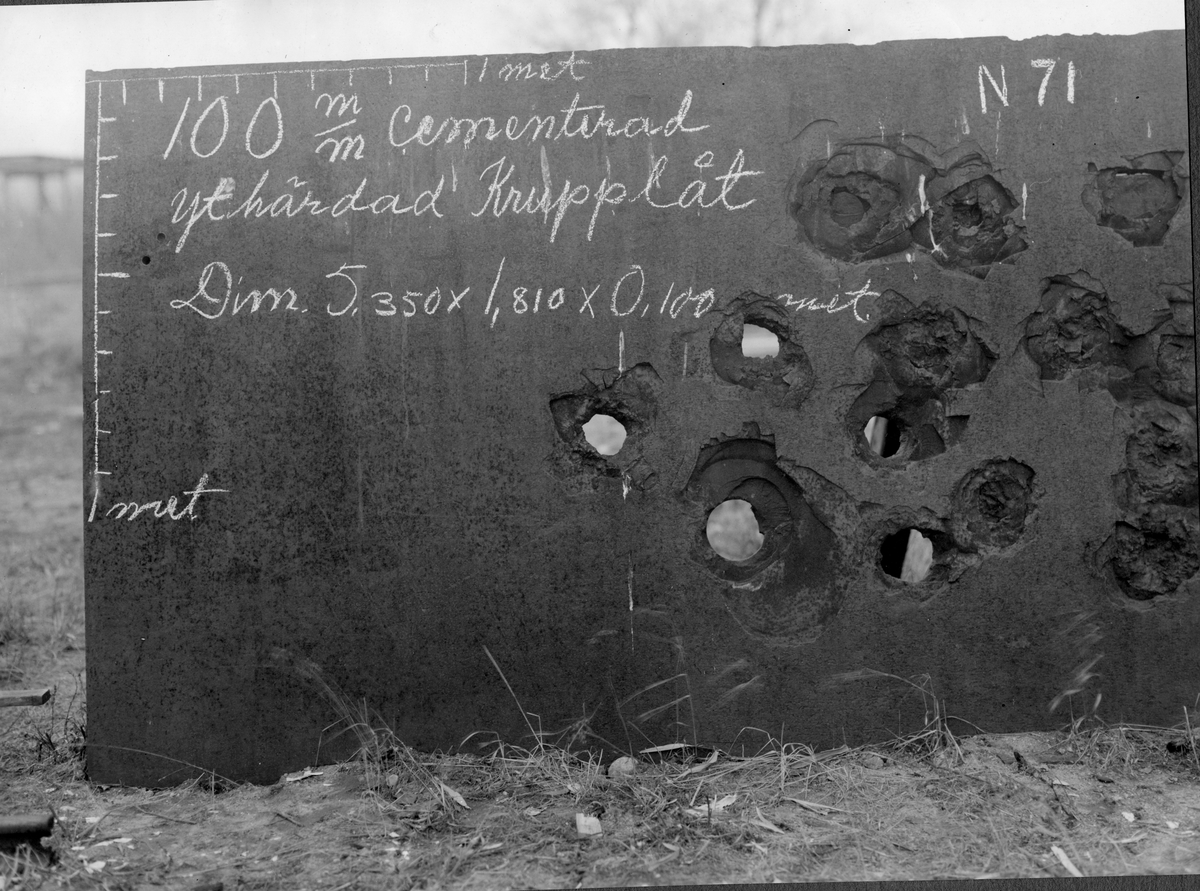 1 met
N 71
100 m/m Cementerad
ythärdad Krupplåt
Dim. 5,350 x 1,810 x 0,100 met.
1 met